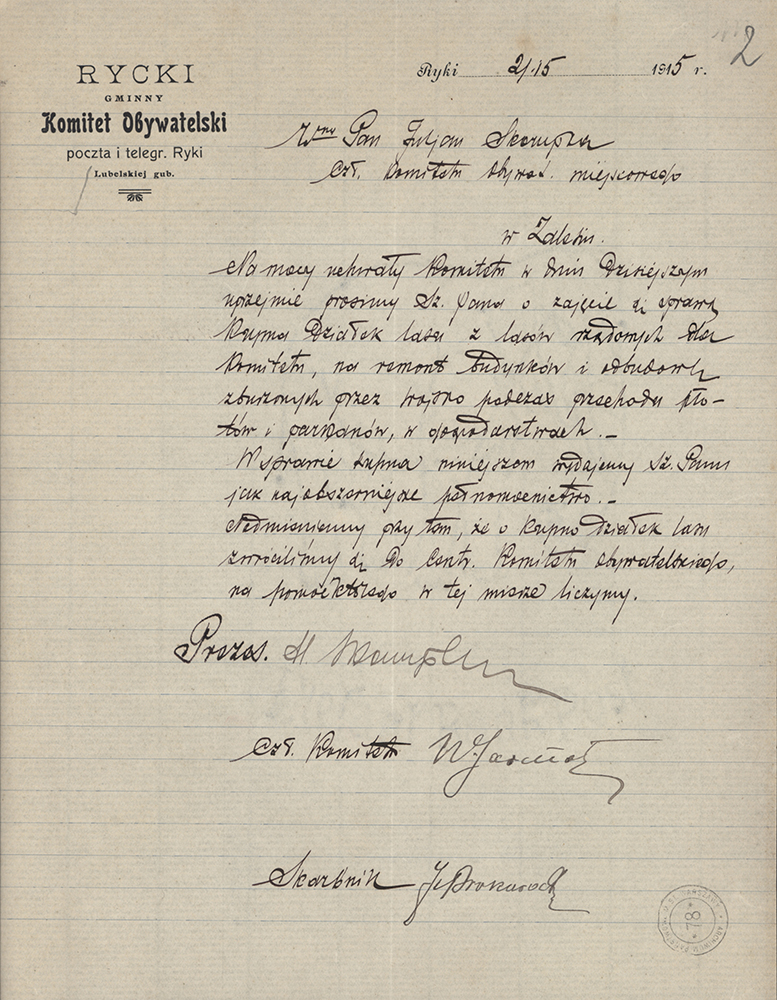 2
RYCKI
GMINNY
Komitet Obywatelski
poczta i telegr. Ryki
Lubelskiej gub.
Ryki 2/15 1915 r.
Wny Pan Juljan Skrupka
Czł. Komitetu Obywat. miejscowego
w Zalesiu.
Na mocy uchwały Komitetu w dniu Dzisiejszym
uprzejmie prosimy Sz. Pana o zajęcie się sprawą
Kupna Działek lasu z lasów rządowych dla
Komitetu, na remont budynków i odbudowę
zburzonych przez wojsko podczas przechodu pło-
tów i parkanów, w gospodarstwach. –
W sprawie kupna niniejszem wydajemy Sz. Panu
jak najobszerniejsze pełnomocnictwo. –
Nadmieniamy przy tem, że o kupno Działek lasu
zwróciliśmy się Do Centr. Komitetu Obywatelskiego,
na pomoc którego w tej mierze liczymy.
Prezes.
Czł. Komitetu
Skarbnik
78